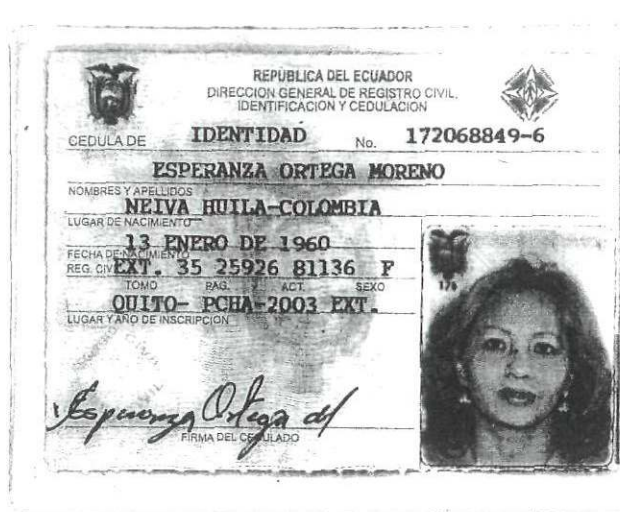 REPUBLICA DEL ECUADOR
DIRECCION GENERAL DE REGISTRO CIVIL,
IDENTIFICACION Y CEDULACION
CEDULA DE IDENTIDAD No. 172068849-6
ESPERANZA ORTEGA MORENO
NOMBRES Y APELLIDOS
NEIVA HUILA-COLOMBIA
LUGAR DE NACIMIENTO
13 ENERO DE 1960
FECHA DE NACIMIENTO
REG. CIV EXT. 35 25926 81136 F
TOMO PAG. ACT. SEXO
QUITO- PCHA-2003 EXT.
LUGAR Y AÑO DE INSCRIPCION
Esperanza Ortega
FIRMA DEL CEDULADO